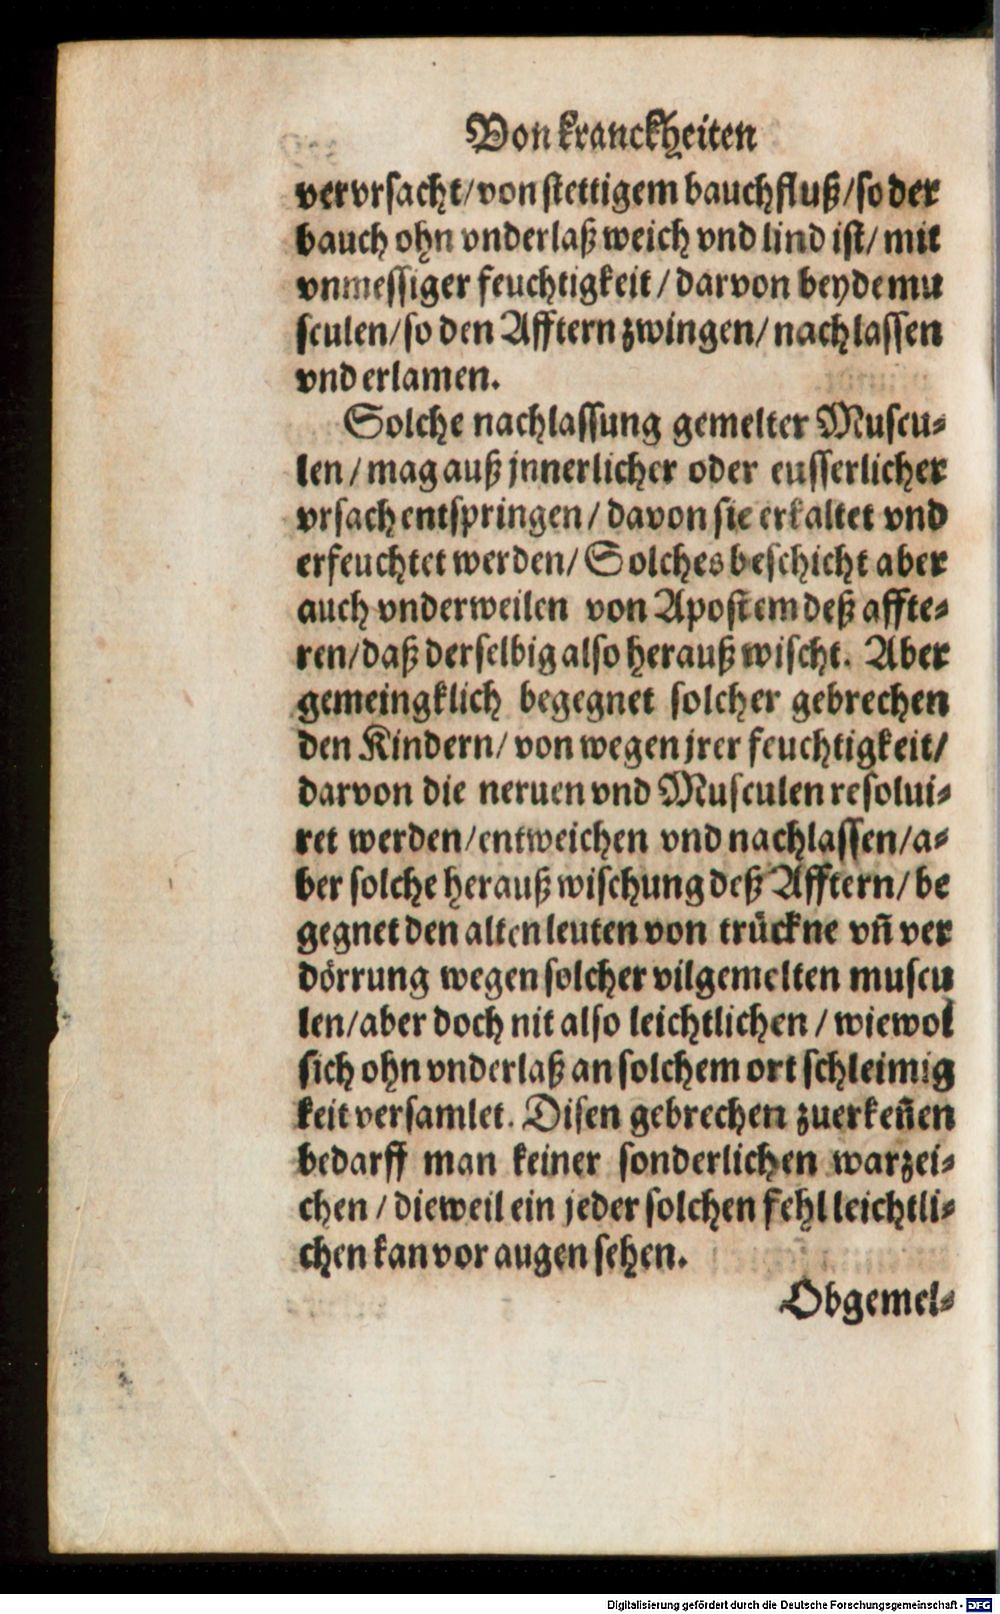 Von kranckheiten
vervrsacht/ von stettigem bauchfluß/ so der
bauch ohn vnderlaß weich vnd lind ist/ mit
vnmessiger feuchtigkeit/ darvon beyde mu
sculen/ so den Afftern zwingen/ nachlassen
vnd erlamen.
Solche nachlassung gemelter Muscu-
len/ mag auß jnnerlicher oder eusserlicher
vrsach entspringen/ davon sie erkaltet vnd
erfeuchtet werden/ Solches beschicht aber
auch vnderweilen von Apostem deß affte-
ren/ daß derselbig also herauß wischt. Aber
gemeingklich begegnet solcher gebrechen
den Kindern/ von wegen jrer feuchtigkeit/
darvon die neruen vnd Musculen resolui-
ret werden/ entweichen vnd nachlassen/ a-
ber solche herauß wischung deß Afftern/ be
gegnet den alten leuten von trückne vñ ver
dörrung wegen solcher vilgemelten muscu
len/ aber doch nit also leichtlichen/ wiewol
sich ohn vnderlaß an solchem ort schleimig
keit versamlet. Disen gebrechen zuerkeñen
bedarff man keiner sonderlichen warzei-
chen/ dieweil ein jeder solchen fehl leichtli-
chen kan vor augen sehen.
Obgemel-
Digitalisierung gefördert durch die Deutsche Forschungsgemeinschaft - DFG